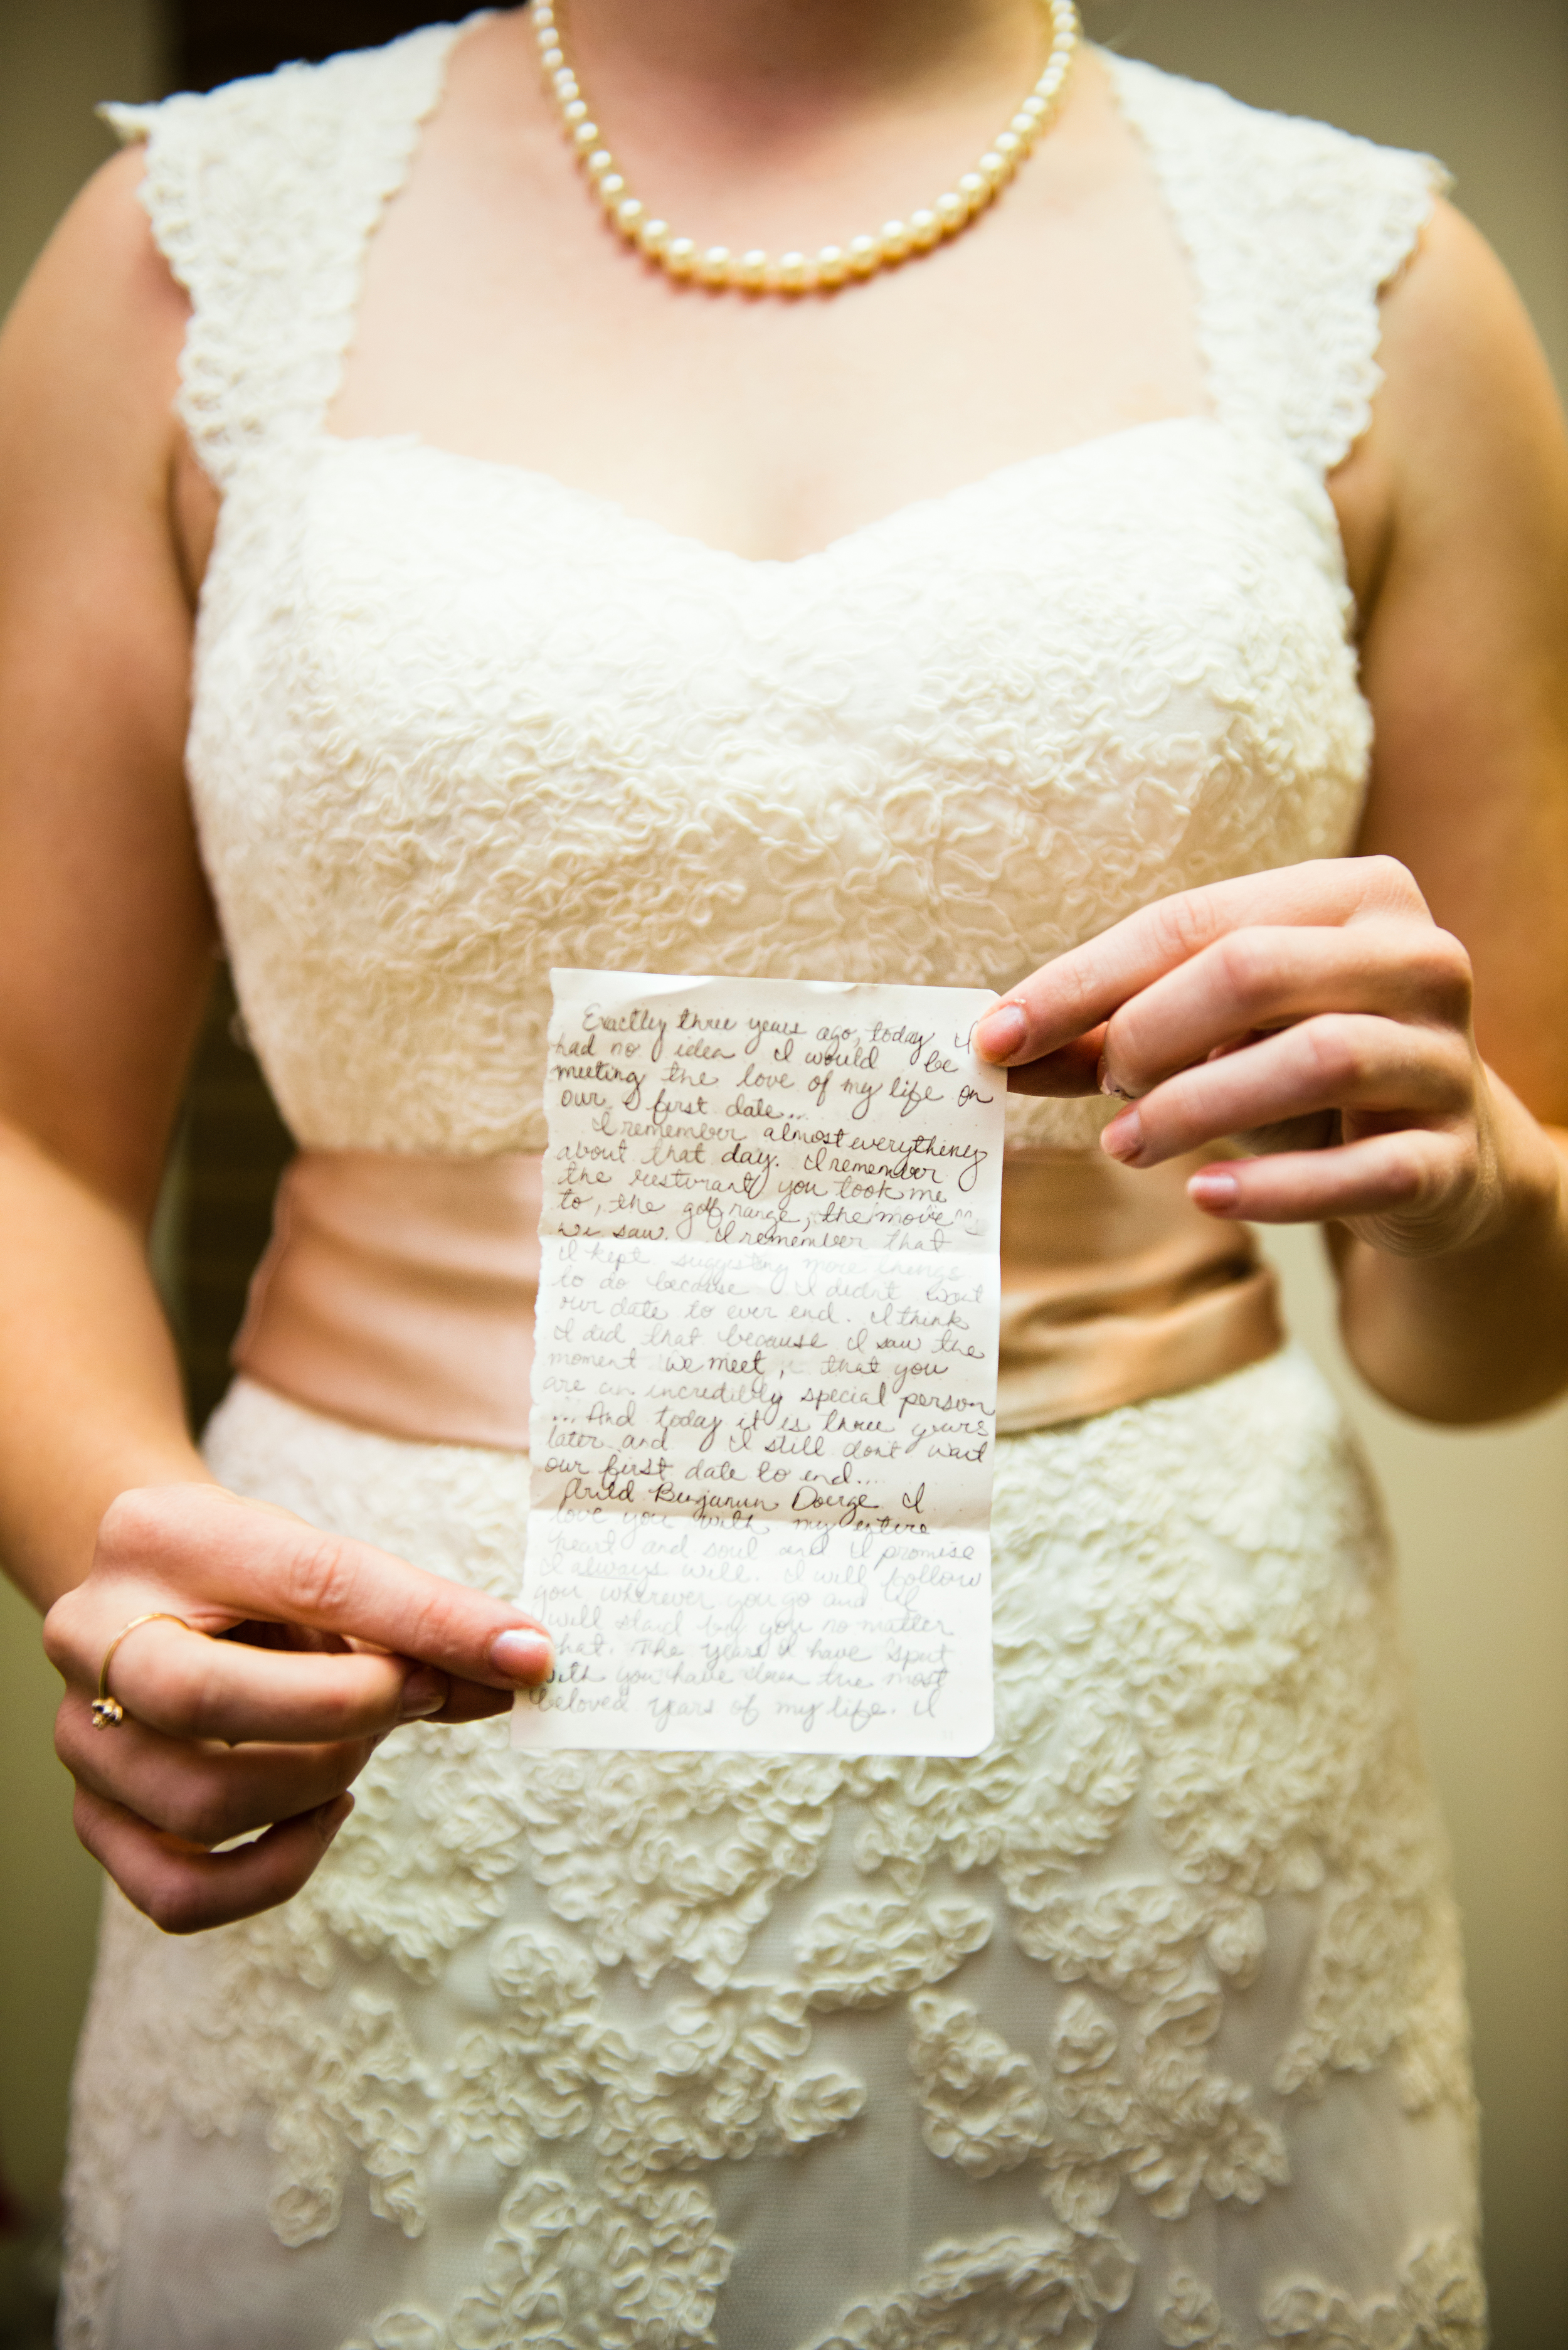 Exactley three years ago, today I
had no idea I would be
meeting the love of my life on
our first date...
I remember almost everything
about that day. I remember
the resturant you took me
to, the golf range, the movie
we saw. I remember that
I kept suggesting more things
to do because I didn't want
our date to ever end. I think
I did that because I saw the
moment we meet, that you
are an incredibly special person
... And today it is three years
later and I still dont want
our first date to end....
Benjamin I
love you with my entire
heart and soul and I promise
I always will. I will follow
you wherever you go and I
will stand by you no matter
what. The years I have spent
with you have been the most
beloved years of my life. I